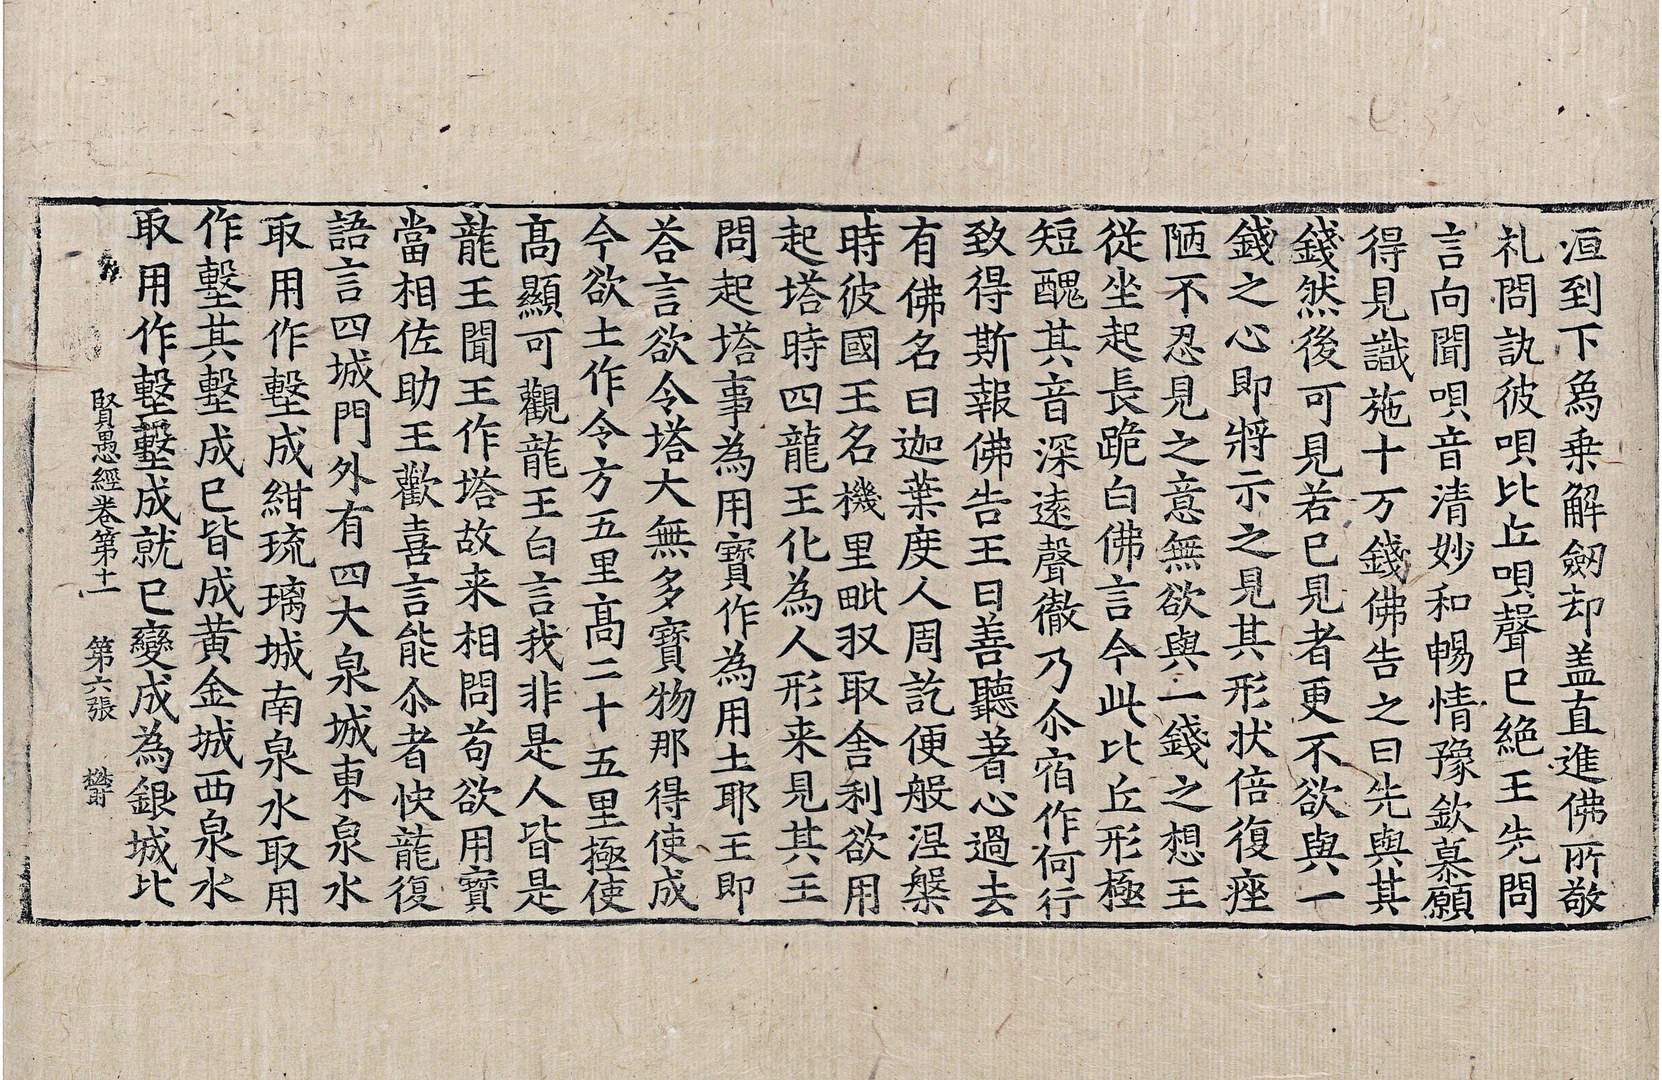 洹到下為乗解劒却盖直進佛所敬
礼問訊彼唄比丘唄聲已絶王先問
言向聞唄音清妙和暢情豫欽慕願
得見識施十万錢佛告之曰先與其
錢然後可見若已見者更不欲與一
錢之心即將示之見其形状倍復痤
陋不忍見之意無欲與一錢之想王
從坐起長跪白佛言今此比丘形極
短醜其音深遠聲徹乃尒宿作何行
致得斯報佛告王曰善聽著心過去
有佛名曰迦葉度人周訖便般涅槃
時彼國王名機里毗収取舎利欲用
起塔時四龍王化為人形来見其王
問起塔事為用寶作為用土耶王即
荅言欲令塔大無多寶物那得使成
今欲土作令方五里髙二十五里極使
髙顯可觀龍王白言我非是人皆是
龍王聞王作塔故来相問苟欲用寶
當相佐助王歡喜言能尒者快龍復
語言四城門外有四大泉城東泉水
取用作墼成紺琉璃城南泉水取用
作墼其墼成已皆成黄金城西泉水
取用作墼墼成就已變成為銀城北
賢愚經卷第十一 第六張 欝